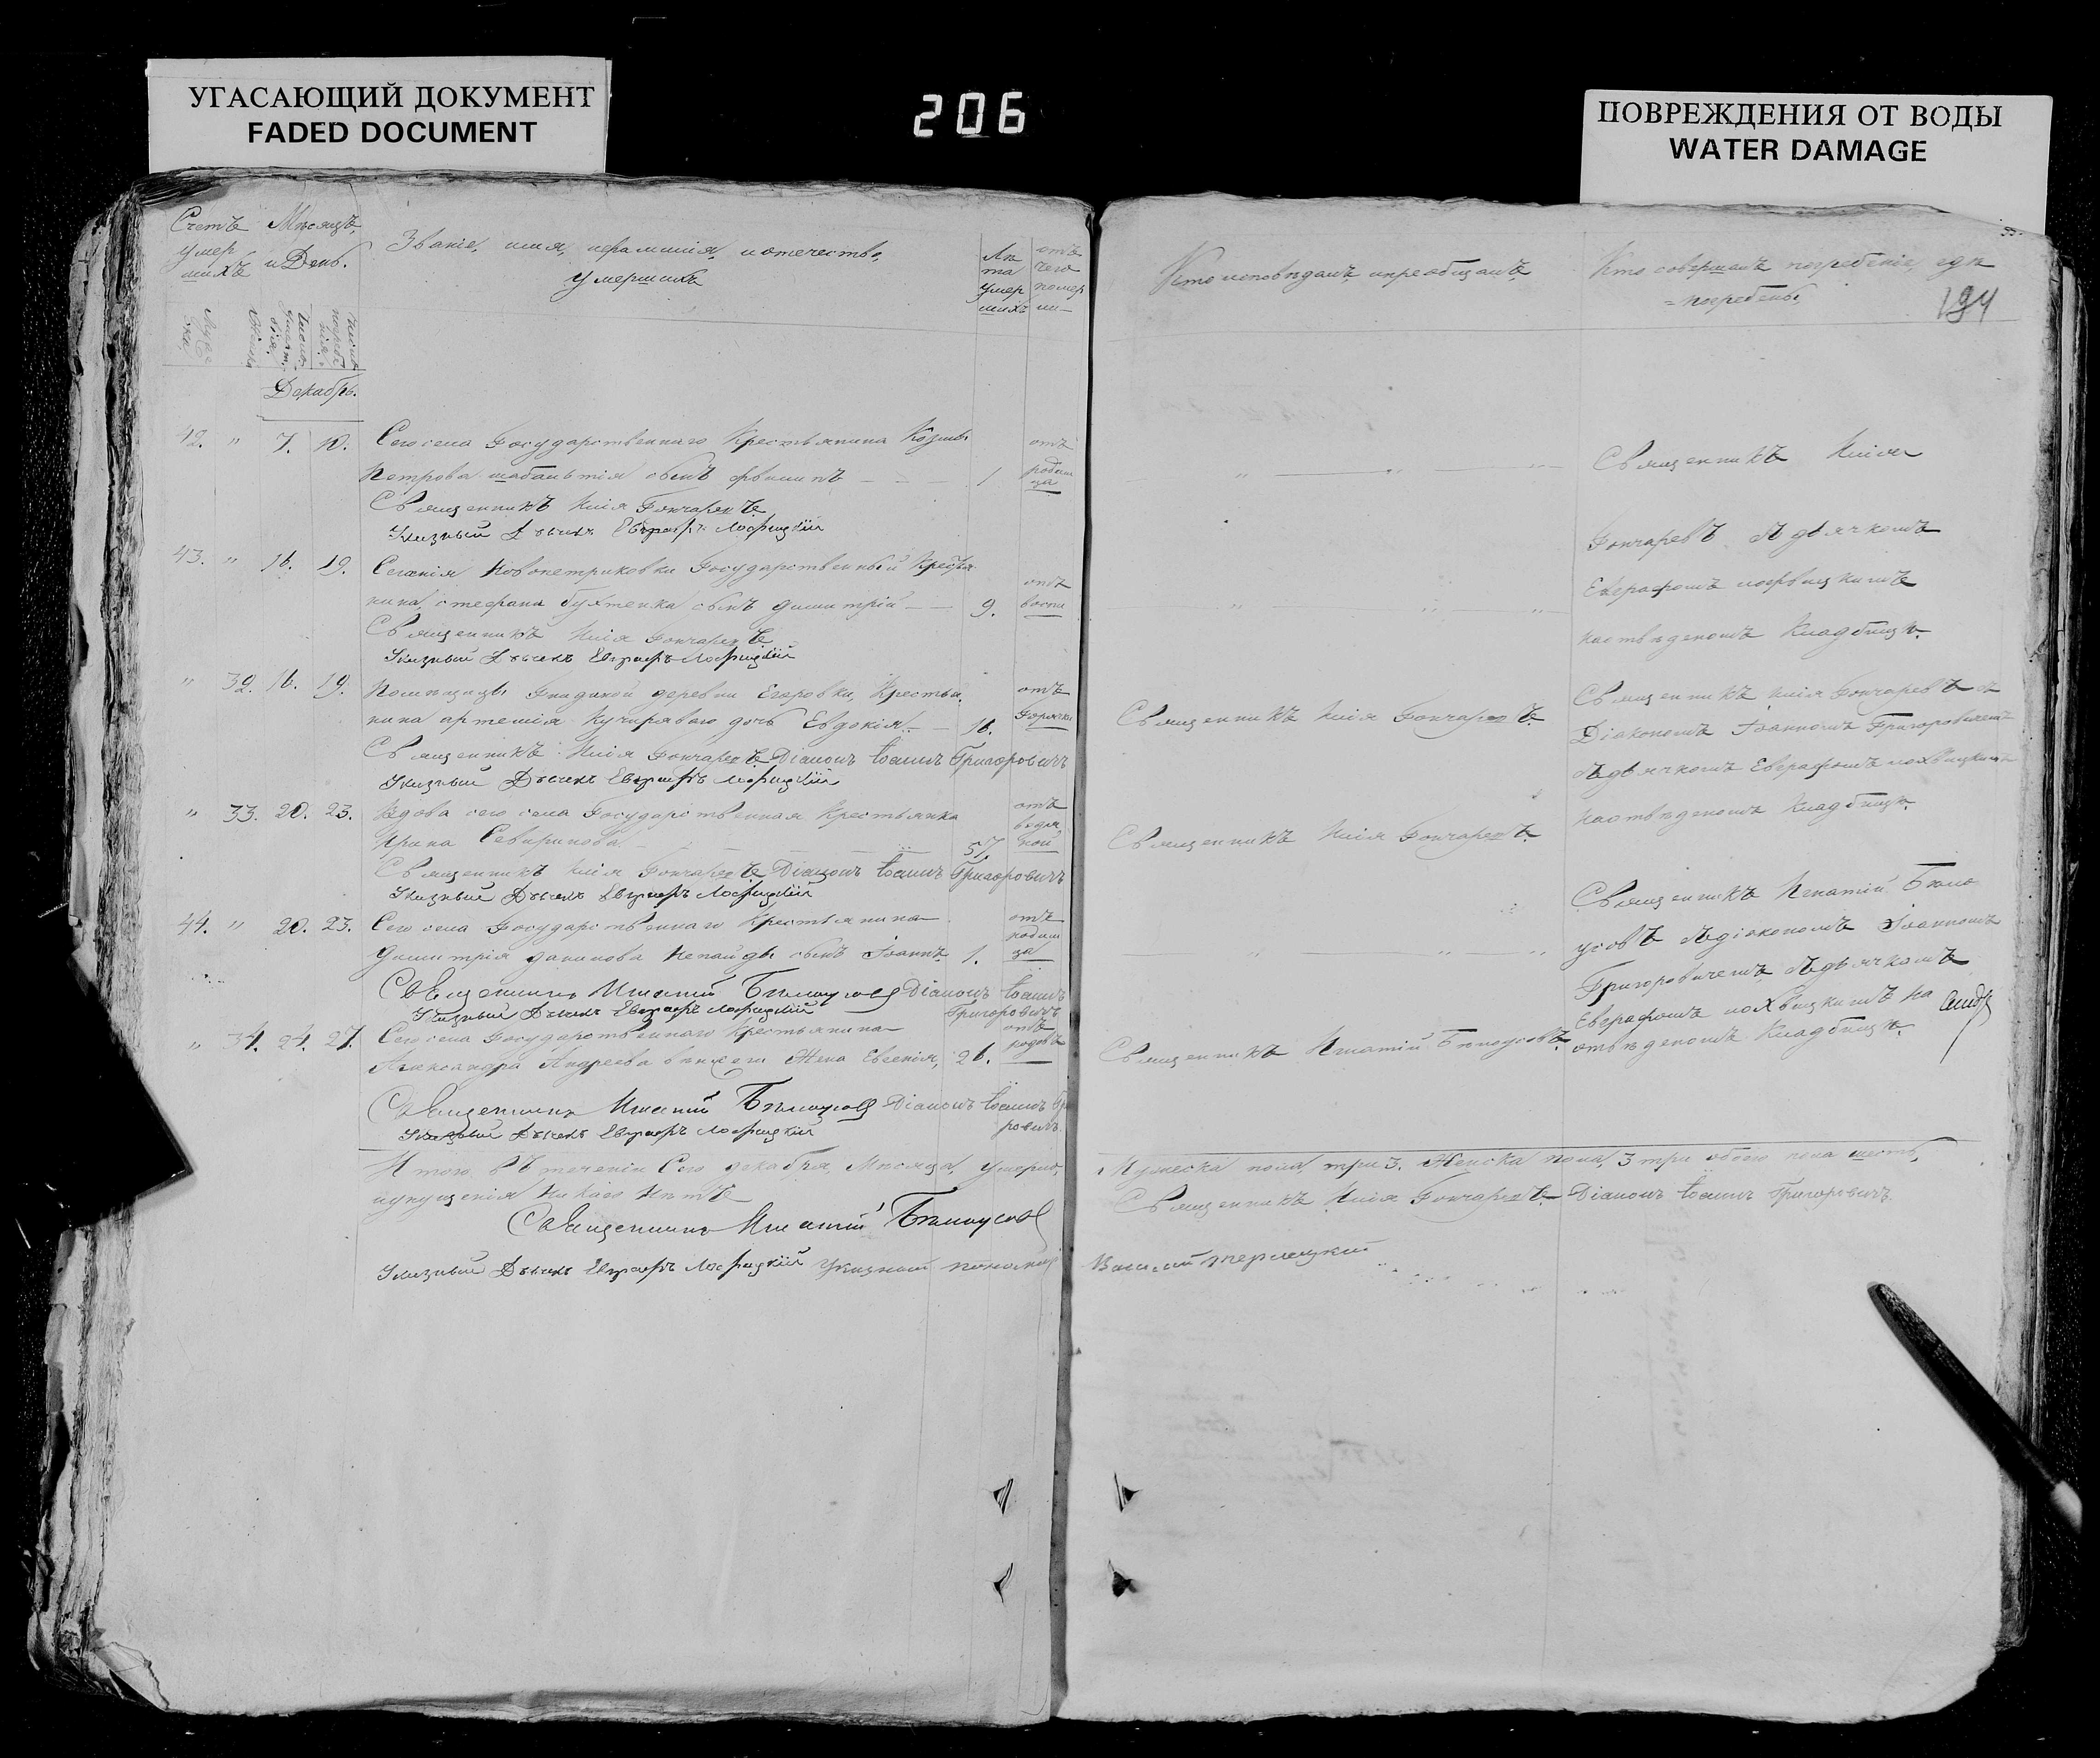 УГАСАЮЩИЙ ДОКУМЕНТ
FADED DOCUMENT
206
ПОВРЕЖДЕНИЯ ОТ ВОДЫ
WATER DAMAGE
Счетъ умер шихъ
Мѣсяцъ и День.
Званіе, имя, фамилія, и отечество,
умершихъ
Лѣ та умер шихъ
отъ чего помер ли
Декабрь.
42. " 7. 10. Сего села Государственнаго Крестьянина Козмы отъ
Петрова сынъ 1 родим ца
Священникъ Илія Гончаревъ
Указный Дьячекъ Евграфъ Лохвицкій
43. " 16. 19. Селенія Новопетриковки Государственный Крестья отъ
нина, стефана бухтенка сынъ димитрій 9. воспи
Священникъ Илія Гончаревъ
Указный Дьячекъ Евграфъ Лохвицкій
" 32. 16. 19. Помѣщицы деревни Егоровки Крестья отъ
нина артемія Кучиряваго дочь Евдокія 16. Горячки
Священникъ Илія Гончаревъ Діаконъ Іоаннъ Григоровичъ
Указный Дьячекъ Евграфъ Лохвицкій
" 33. 20. 23. Вдова сего села Государственная Крестьянка отъ
Ирина Северинова 57 водя ной
Священникъ Илія Гончаревъ Діаконъ Іоаннъ Григоровичъ
Указный Дьячекъ Евграфъ Лохвицкій
44. " 20. 23. Сего села Государственнаго Крестьянина отъ
Димитрія данилова сынъ Іоаннъ 1. родим ца
Священникъ Игнатій Бѣлоусовъ Діаконъ Іоаннъ
Указный Дьячекъ Евграфъ Лохвицкій Григоровичъ
" 34. 24. 27. Сего села Государственнаго Крестьянина отъ
Александра Андреева Жена Евгенія, 26. родовъ
Священникъ Игнатій Бѣлоусовъ Діаконъ Іоаннъ Гри
Указный Дьячекъ Евграфъ Лохвицкій ровичъ
Итого въ теченіи Сего декабря Мѣсяца, умерло,
Священникъ Игнатій Бѣлоусовъ
Указный Дьячекъ Евграфъ Лохвицкій Указный пономарь
Кто исповѣдалъ, и пріобщалъ
Кто совершалъ погребеніе, и гдѣ
погребены,
194
Священникъ Илія
Гончаревъ съ дьячкомъ
Евграфомъ лохвицкимъ
на отвѣденомъ Кладбищѣ
Священникъ Илія Гончаревъ
Священникъ Илія Гончаревъ съ
Діакономъ Іоанномъ Григоровичемъ
съ дьячкомъ Евграфомъ лохвицкимъ
на отвѣденомъ Кладбищѣ
Священникъ Илія Гончаревъ
Священникъ Игнатій Бѣло
усовъ съ діакономъ Іоанномъ
Григоровичемъ съ дьячкомъ
Евграфомъ лохвицкимъ на
отвѣденомъ Кладбищѣ
Священникъ Игнатій Бѣлоусовъ
Мужеска пола три 3. Женска пола, 3 три обоего пола шесть,
Священникъ Илія Гончаревъ Діаконъ Іоаннъ Григоровичъ